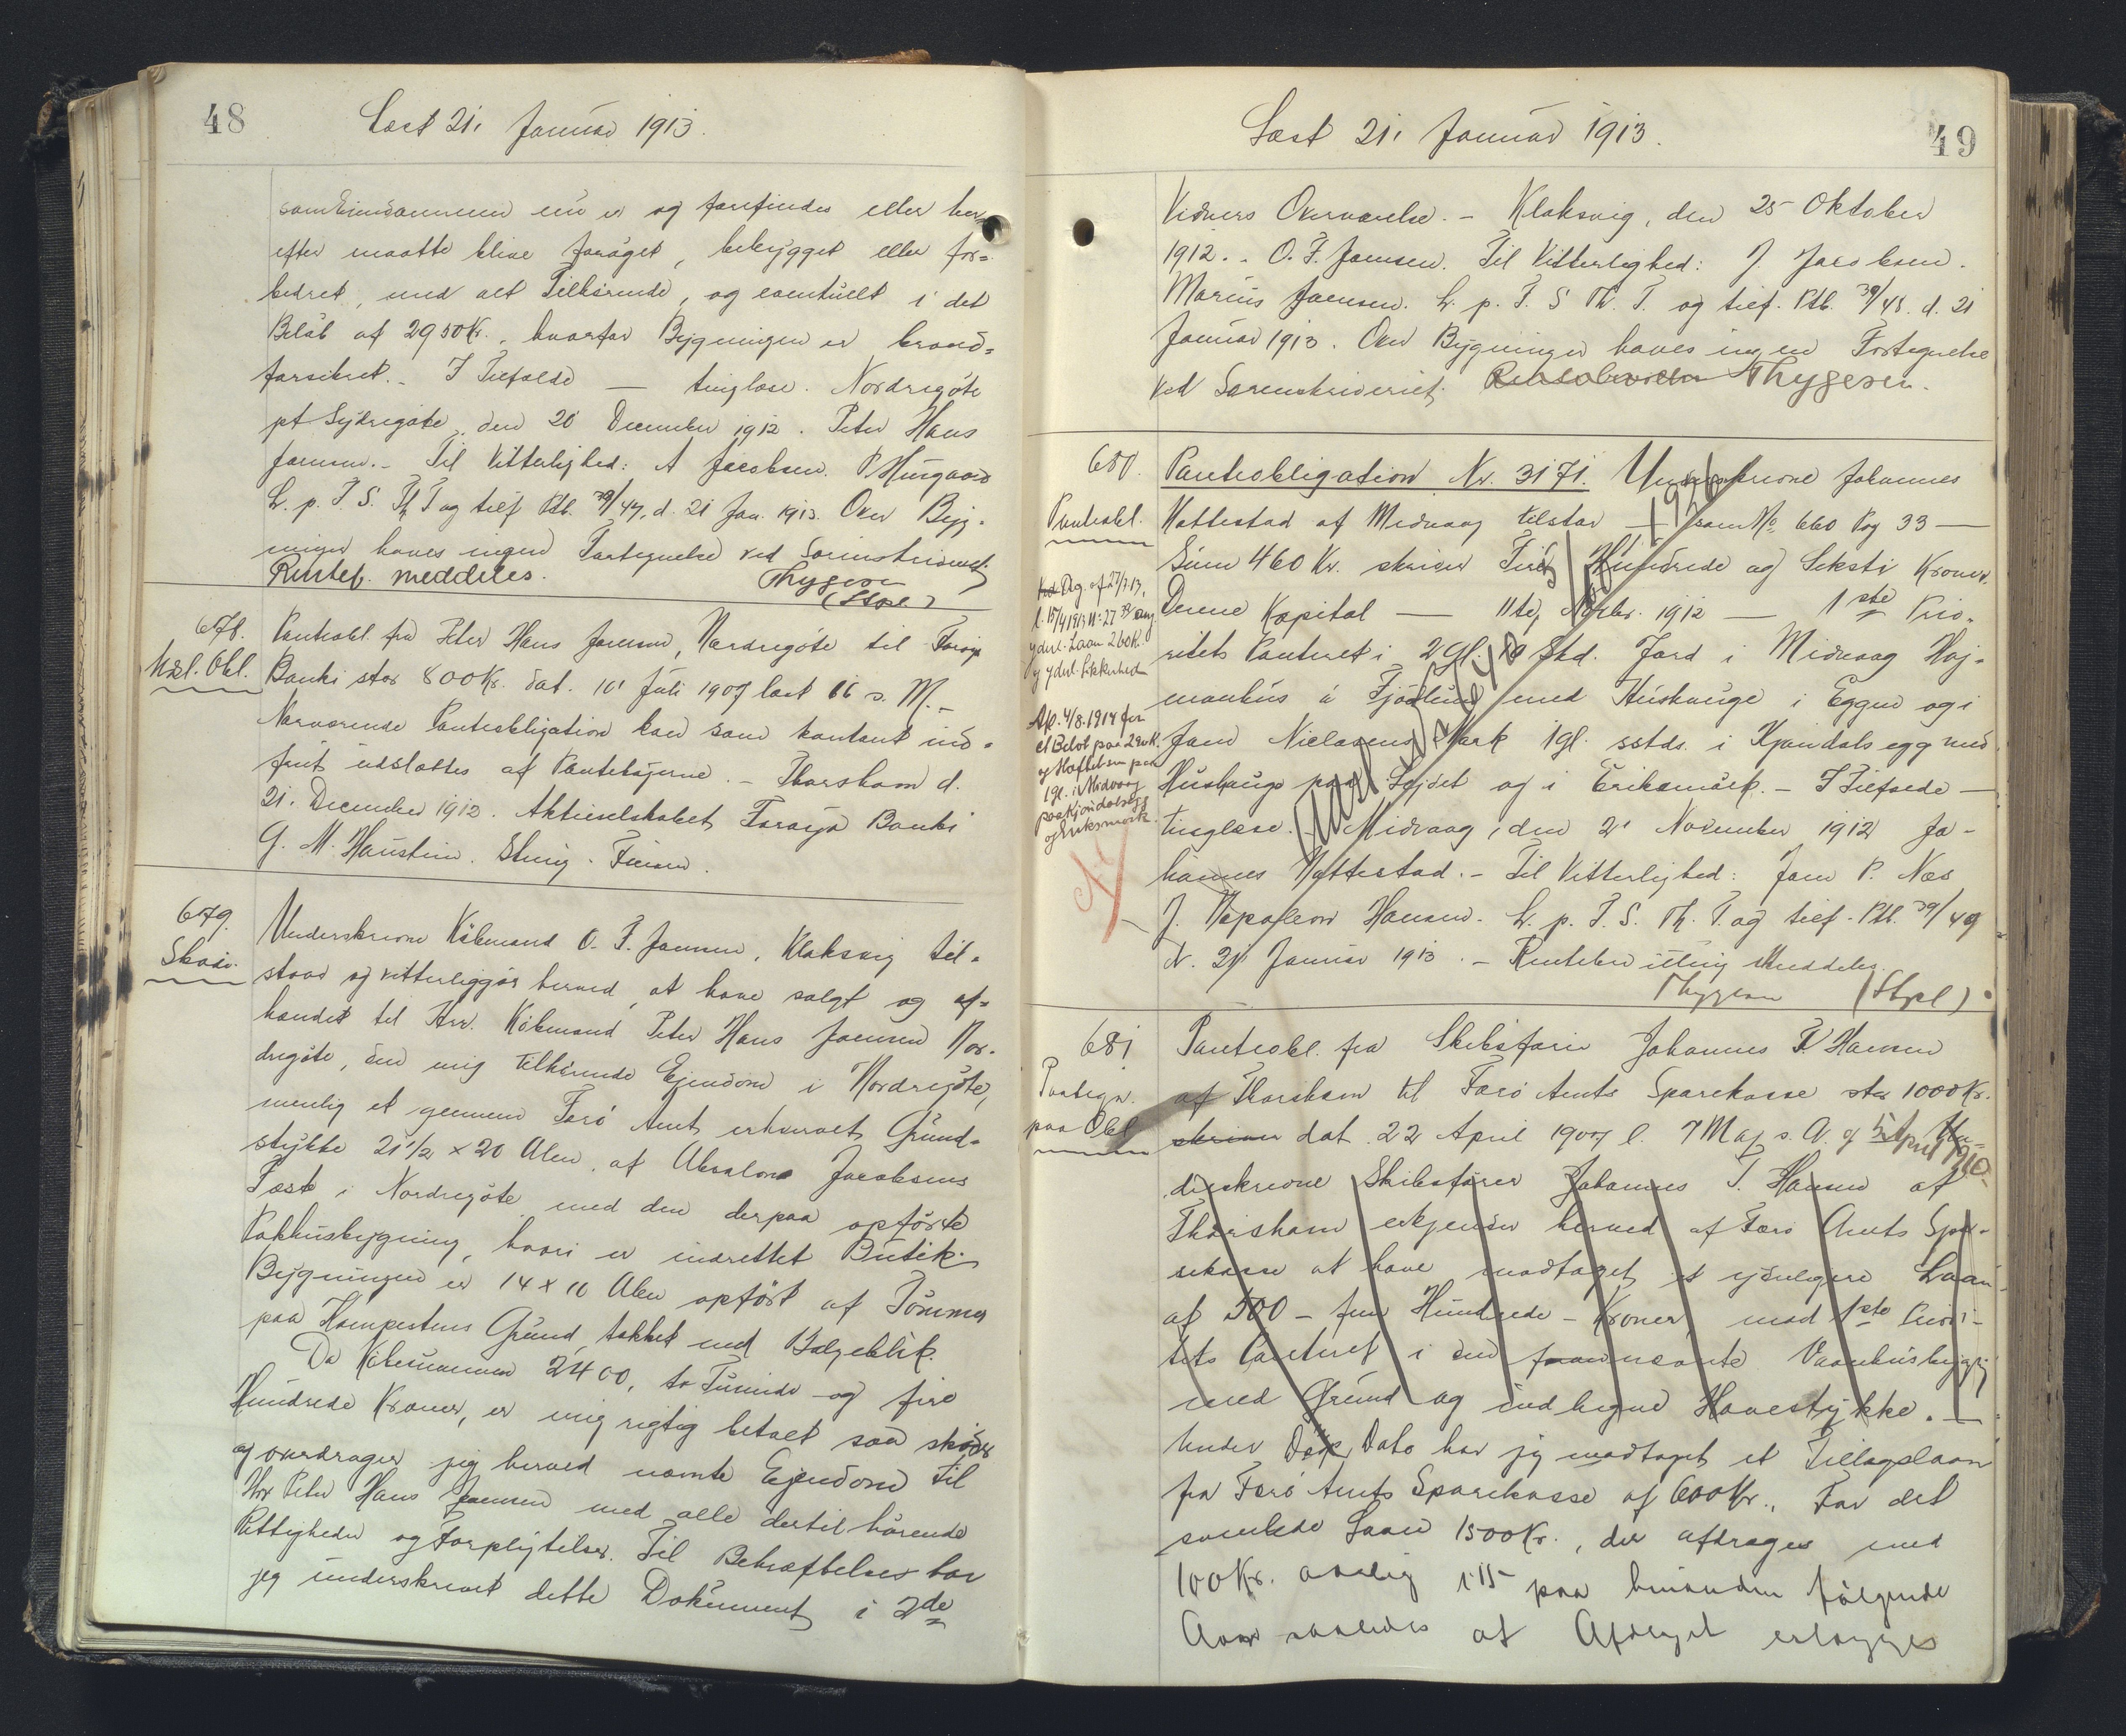 48
Læst 21. Januar 1913.
som Ejendommen nu er og forefindes eller her
efter maatte blive forøget, bebygget eller for=
bedret, med alt Tilhørende, og eventuelt i det
Beløb af 2950 Kr., hvorfor Bygningen er brand=
forsikret. - I Tilfælde — tinglæse. Nordregøte
pt Sydregøte, den 20 December 1912. Peter Hans
Joensen. - Til Vitterlighed: A Jacobsen. P Huusgaard
L. p. T. S. Th T og tilf Ptb. 39/47, d. 21 Jan. 1913. Over Byg-
ninger haves ingen Fortegnelse ved Sorenskriveriet.
Rentef. meddeles. Thygesen
(Stpl)
678.
Udsl. Obl.
Panteobl. fra Peter Hans Joensen, Nordregøte til Føroya
Banki stor 800 Kr. dat. 10 Juli 1907 læst 16 s. M. -
Nærværende Panteobligation kan som kontant ind-
friet udslettes af Pantebøgerne. - Thorshavn d.
21. December 1912. Aktieselskabet Førøya Banki
679.
Skøde.
Underskrevne Købmand O. F. Joensen, Klaksvig til-
staar og vitterliggør herved, at have solgt og af=
hændet til Hrr. Købmand Peter Hans Joensen Nor-
dregøte, den mig tilhørende Ejendom i Nordregøte,
nemlig et gennem Færø Amt erhvervet Grund-
stykke 21 1/2 x 20 Alen, af Absalon Jacobsens
Fæste i Nordregøte med den derpaa opførte
Pakhusbygning, hvori er indrettet Butik.
Bygningen er 14 x 10 Alen opført af Tømmer
paa Kampestens Grund, tækket med Bølgeblik.
Da Købesummen 2400, to Tusinde og fire
Hundrede Kroner, er mig rigtig betalt saa skøder
og overdrager jeg herved nævnte Ejendom til
Hrr Peter Hans Joensen med alle dertil hørende
Rettigheder og Forpligtelser. Til Bekræftelse har
jeg underskrevet dette Dokument i 2de
49
Læst 21. Januar 1913.
Vidners Overværelse. - Klaksvig, den 25 Oktober
1912. - O. F. Joensen. Til Vitterlighed: J. Jacobsen.
Marius Joensen. L. p. T. S Th. T. og tilf. Ptb. 39/48. d. 21
Januar 1913. Over Bygninger haves ingen Fortegnelse
ved Sorenskriveriet. Thygesen.
680.
Panteobl.
Panteobligation Nr. 3171. Underskrevne Johannes
Nattestad af Midvaag tilstaar — som No. 660 Pag 33 —
Sum 460 Kr. skriver Fire Hundrede og Seksti Kroner.
Denne Kapital — 11te Novbr. 1912 — 1ste Prio-
ritets Panteret i 2 Gl. Skd. Jord i Midvaag Høj-
manhus á Fjødlund med Huskauge i Eggen og i
Joen Niclasens Mark 1gl. sstds. i Kjøndalsegg med
Hushauge paa Lejdet og i Eriksmørk. - I Tilfælde —
tinglæse. - Midvaag, den 2. November 1912 Jo-
hannes Nattestad. - Til Vitterlighed: Joen P. Næs
J. Napoleon Hansen. L. p. T. S. Th. T. og tilf. Ptb. 39/49
d. 21 Januar 1913. - Meddeles.
Thygesen (Stpl)
Afl. 4/8. 1914 for
et Beløb paa 230 K.
og Hæftelsen paa
1gl. i Midvaag
paa Kjøndalsegg
og Eriksmørk.
681
Paategn.
paa Obl
Panteobl. fra Skibsfører Johannes T. Hansen
af Thorshavn til Færø Amts Sparekasse stor 1000 Kr.
dat. 22 April 1907 l. 7 Maj s. A. og April 1910 Un-
derskrevne Skibsfører Johannes T. Hansen af
Thorshavn erkjender herved af Færø Amts Spa-
rekasse at have modtaget et yderligere Laan
af 500 - fem Hundrede - Kroner mod 1ste Priori-
tets Panteret i den fornævnte Vaanhusbygning
med Grund og indhegnet Havestykke. —
Under Dags Dato har jeg modtaget et Tillægslaan
fra Færø Amts Sparekasse af 600 Kr., For det
samlede Laan 1500 Kr., der afdrages med
100 Kr. aarlig i 15 paa hinanden følgende
Aar saaledes at Afdraget erlægges